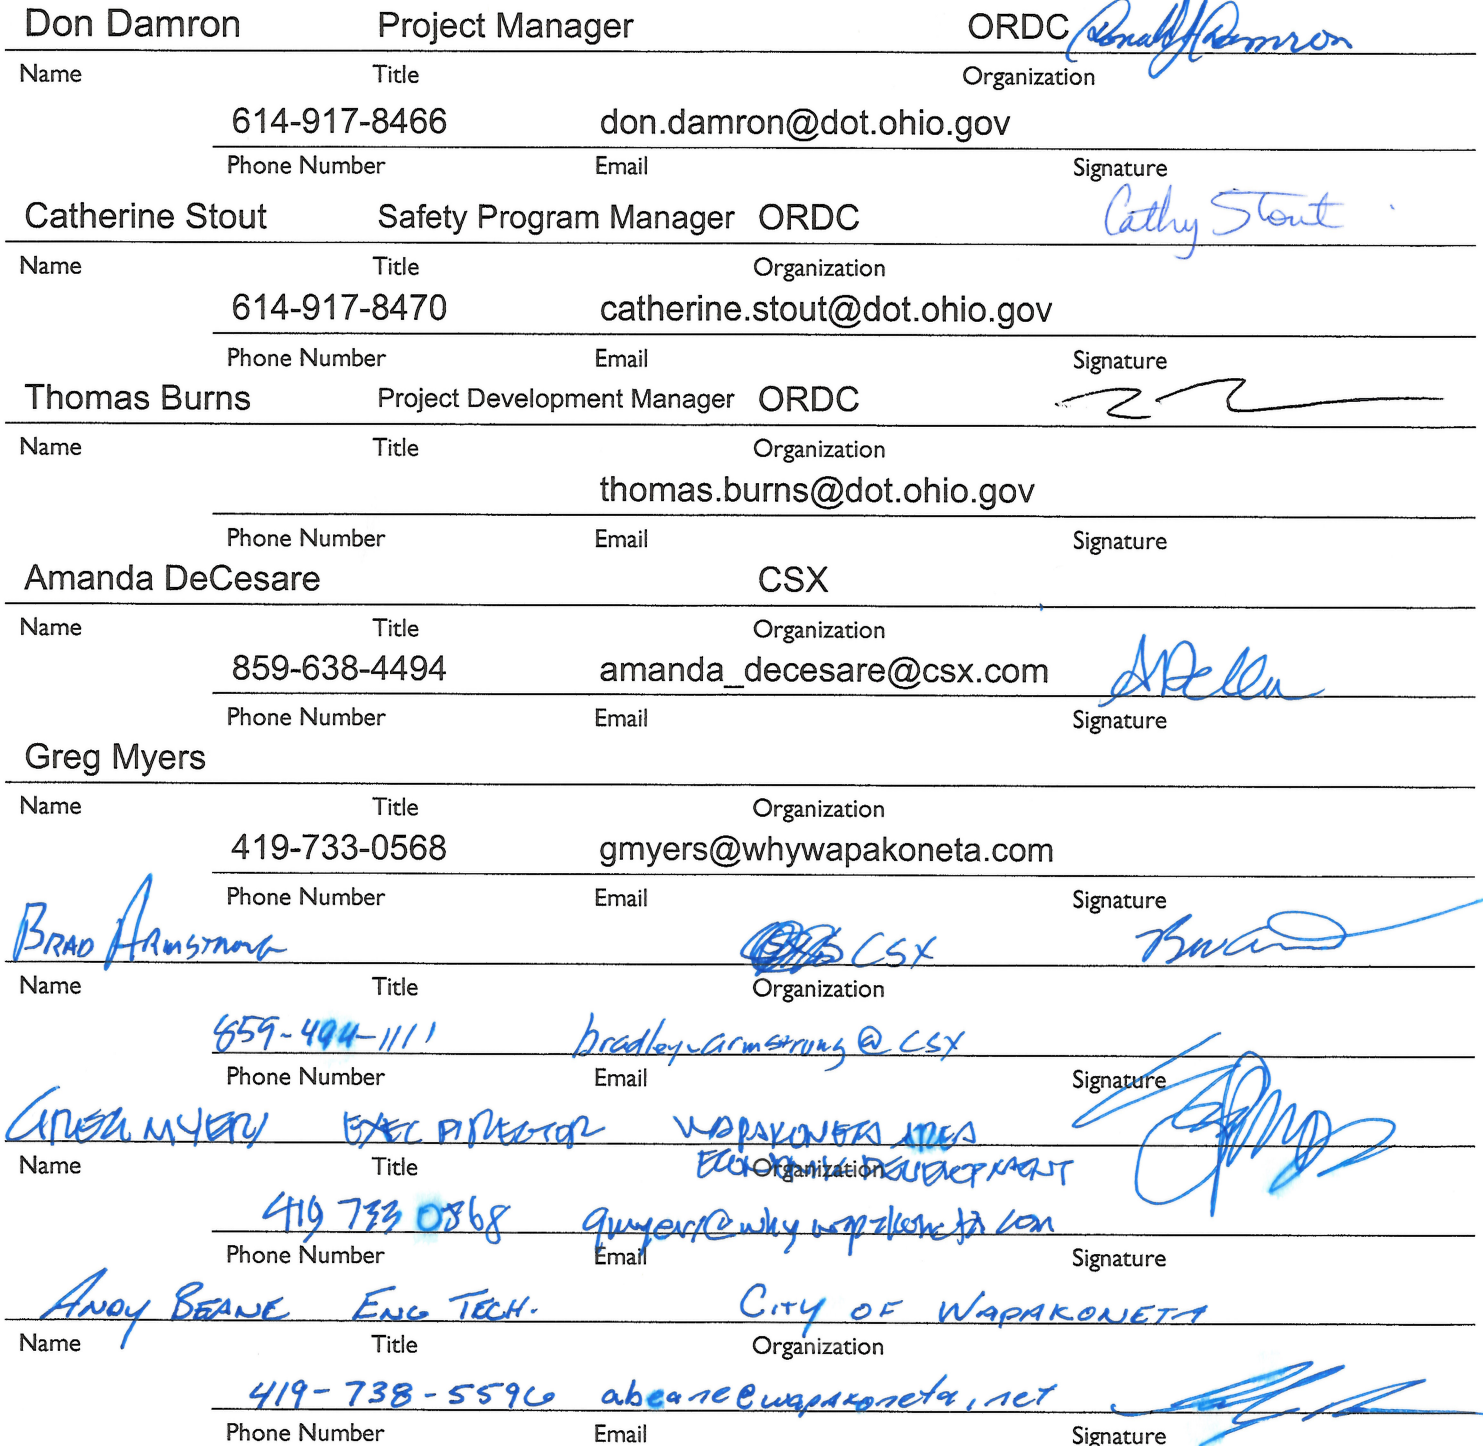 Don Damron Project Manager ORDC Donald Damron
Name Title Organization
614-917-8466 don.damron@dot.ohio.gov
Phone Number Email Signature
Catherine Stout Safety Program Manager ORDC Cathy Stout
Name Title Organization
614-917-8470 catherine.stout@dot.ohio.gov
Phone Number Email Signature
Thomas Burns Project Development Manager ORDC
Name Title Organization
thomas.burns@dot.ohio.gov
Phone Number Email Signature
Amanda DeCesare CSX
Name Title Organization
859-638-4494 amanda_decesare@csx.com
Phone Number Email Signature
Greg Myers
Name Title Organization
419-733-0568 gmyers@whywapakoneta.com
Phone Number Email Signature
BRAD ARMSTRONG CSX
Name Title Organization
859-494-1111 bradley_armstrong@CSX
Phone Number Email Signature
GREG MYERS EXEC DIRECTOR WAPAKONETA AREA
ECONOMIC DEVELOPMENT
Name Title Organization
419 733 0568 gmyers@whywapakoneta.com
Phone Number Email Signature
ANDY BEANE ENG TECH. CITY OF WAPAKONETA
Name Title Organization
419-738-5596 abeane@wapakoneta.net
Phone Number Email Signature